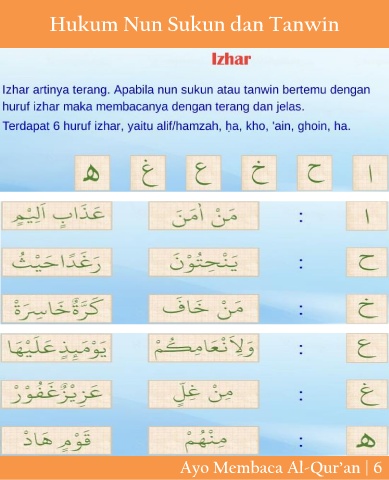 Hukum Nun Sukun dan Tanwin
Izhar
Izhar artinya terang. Apabila nun sukun atau tanwin bertemu dengan
huruf izhar maka membacanya dengan terang dan jelas.
Terdapat 6 huruf izhar, yaitu alif/hamzah, ḥa, kho, 'ain, ghoin, ha.
ا ح خ ع غ ه
ا : مَنْ اٰمَنَ عَذَابٍ اَلِيْمٍ
ح : يَنْحِتُوْنَ رَغَدًا حَيْثُ
خ : مَنْ خَافَ كَرَّةٌ خَاسِرَةٌ
ع : وَلِاَنْعَامِكُمْ يَوْمَىِٕذٍ عَلَيْهَا
غ : مِنْ غِلٍّ عَزِيْزٌ غَفُوْرٌ
ه : مِنْهُمْ قَوْمٍ هَادٍ
Ayo Membaca Al-Qur'an | 6